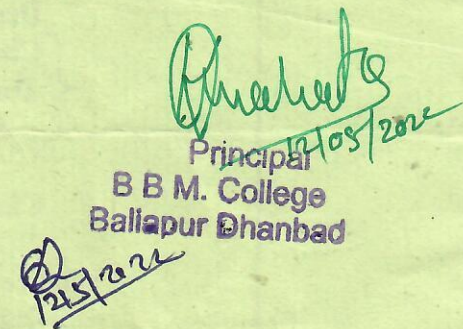 12/05/2022
Principal
B B M. College
Baliapur Dhanbad
12/5/2022